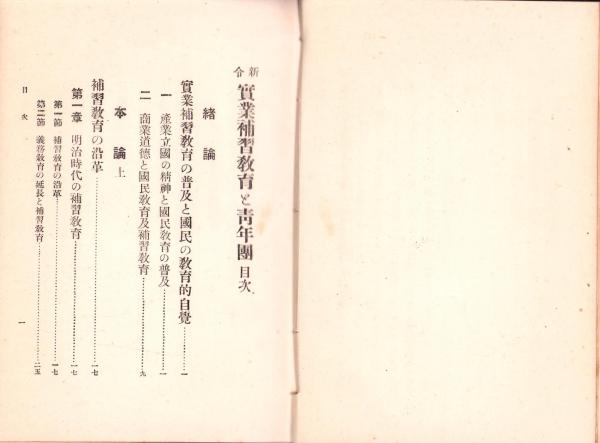 新令 實業補習敎育と靑年團 目次
緖論
實業補習敎育の普及と國民の敎育的自覺…………一
一 產業立國の精神と國民敎育の普及…………一
二 商業道德と國民敎育及補習敎育…………九
本論 上
補習敎育の沿革…………一七
第一章 明治時代の補習敎育…………一七
第一節 補習敎育の沿革…………一七
第二節 義務敎育の延長と補習敎育…………二五
目次
一